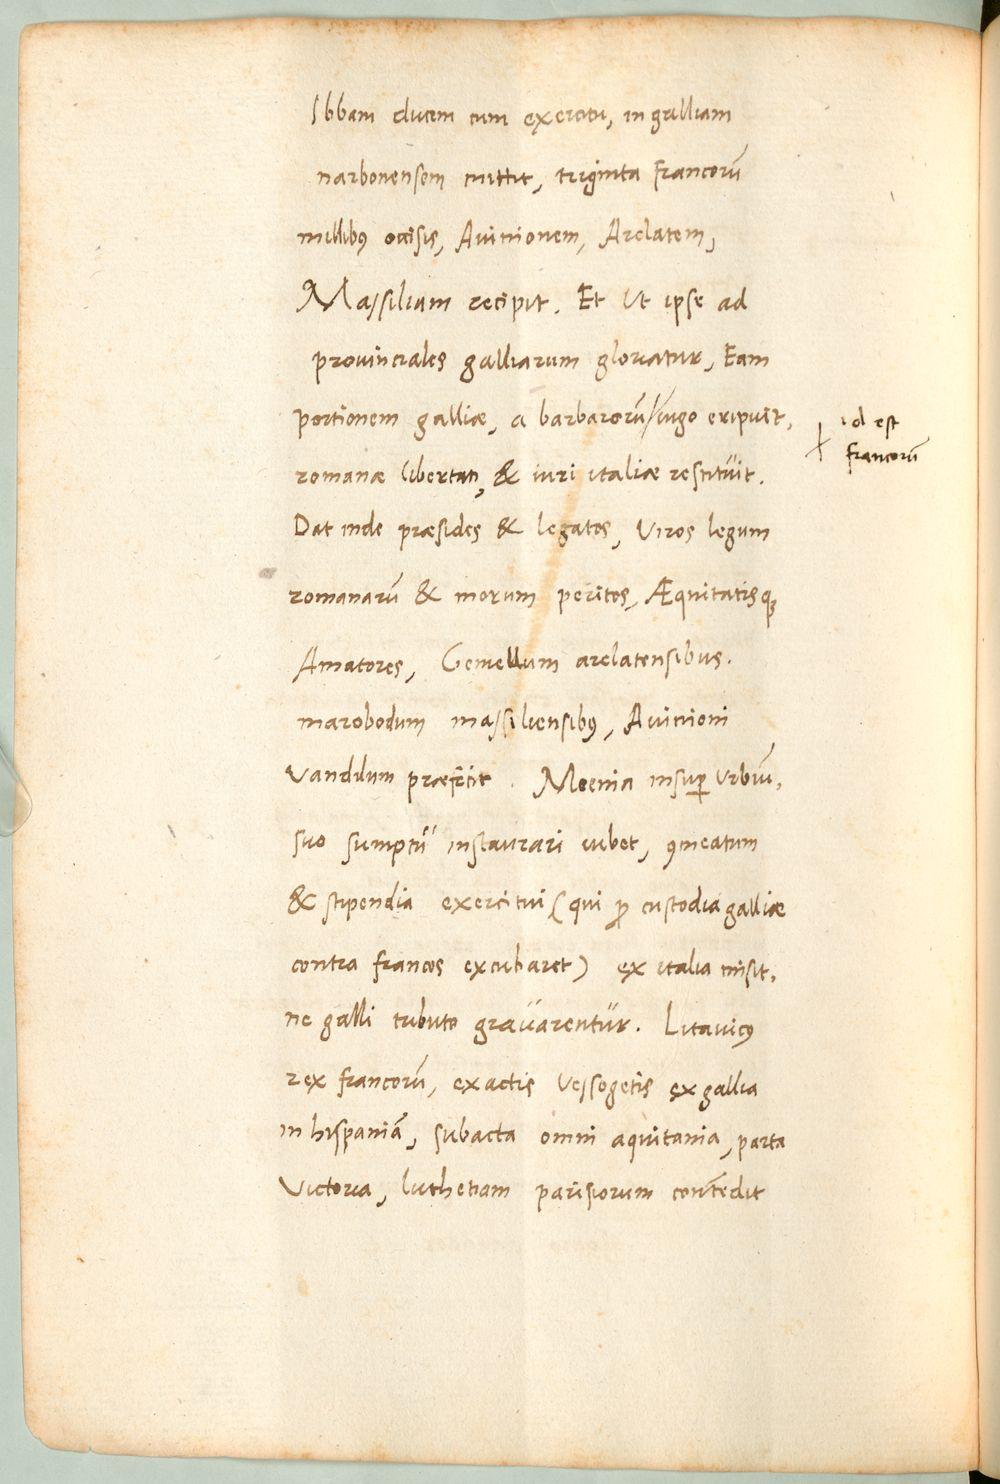 Ibbam ducem cum exercitu, in galliam
narbonensem mittit, triginta francorū
millibꝰ occisis, Auinionem, Arelatem,
Massiliam recipit. Et Ut ipse ad
prouinciales galliarum gloriatur, Eam
portionem galliæ, a barbarorū/iugo eripuit,
id est
francorū
romanæ libertati, & iuri italiæ restituit.
Dat inde præsides & legatos, Viros legum
romanarū & morum peritos, Æquitatisqꝫ
Amatores, Gemellum arelatensibus.
marobodum massiliensibꝰ, Auinioni
Vandilum præficit. Moenia insuꝑ Urbiū,
suo sumptu instaurari iubet, ꝯmeatum
& stipendia exercitui (qui ꝓ custodia galliæ
contra francos excubaret) ex italia misit,
ne galli tributo grauarentur. Litauicꝰ
rex francorū, exactis Vessogetis ex gallia
in hispaniā, subacta omni aquitania, parta
Victoria, luthetiam parisiorum contēdit